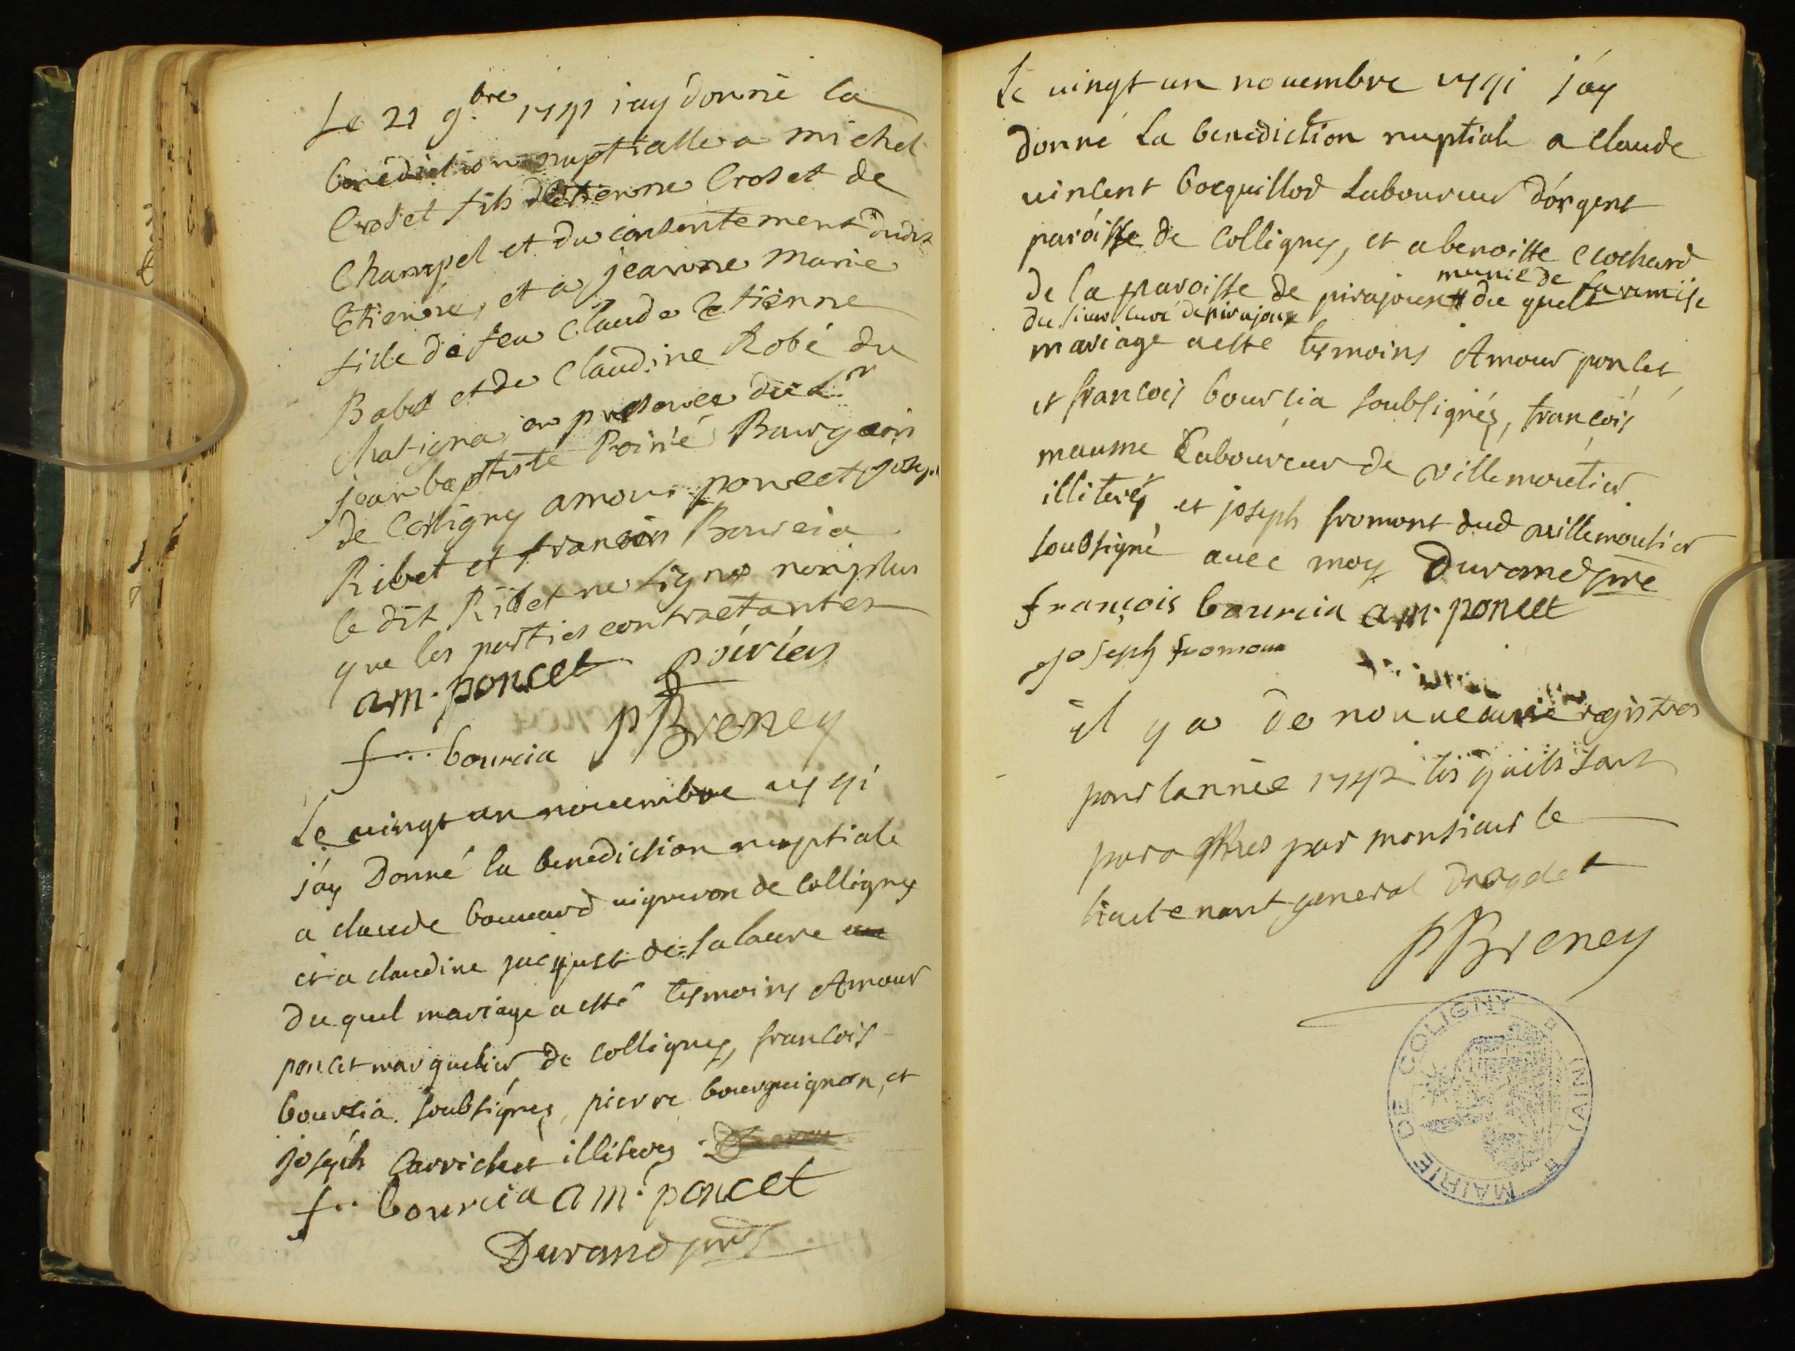 Le 21 9.bre 1791 iay donné la
bénédiction nuptialle a michel
Croset fils destienne Croset de
Champel et du consentement dudit
Etienne, et a jeanne marie
fille de feu Claude Etienne
Babet et de Claudine Robé du
Chatignа, en presence du Sr
jean baptiste Poirié Bourgeois
de Colligny amour poncet joseph
Ribet et francois Bourcia
le dit Ribet ne signe nonplus
que les parties contractantes
am. poncet poiriés
f... bourcia PBreney
Le vingt un novembre 1791
j'ay Donné la benediction nuptiale
a claude bouvard vigneron de Colligny
et a claudine jacquet de
du quel mariage a esté tesmoins Amour
poncet marguelier de Colligny, francois
bourcia soubsignes, pierre bourguignon, et
joseph Carrichet illiterés
f.. bourcia am. poncet
Durand pre
Le vingt un novembre 1791 j'ay
donné La benediction nuptiale a claude
vincent bocquillod Laboureur d'órgent
paróisse de Colligny, et a benoiste Clochard
de la paroisse de pirajoux munie de la remise
du sieur curé de pirajoux du quel
mariage a esté tesmoins Amour poncet
et francois bourcia soubsignés, francois
maume Laboureur de villemoutier
illiterés et joseph fromont dud villemoutier
soubsigné avec moy Durand pre
françois bourcia am. poncet
joseph fromon
il y a de nouveau registres
pour lannée 1792 qu'ils sont
paraphés par monsieur le
lieutenant general
PBreney
MAIRIE DE COLIGNY (AIN)